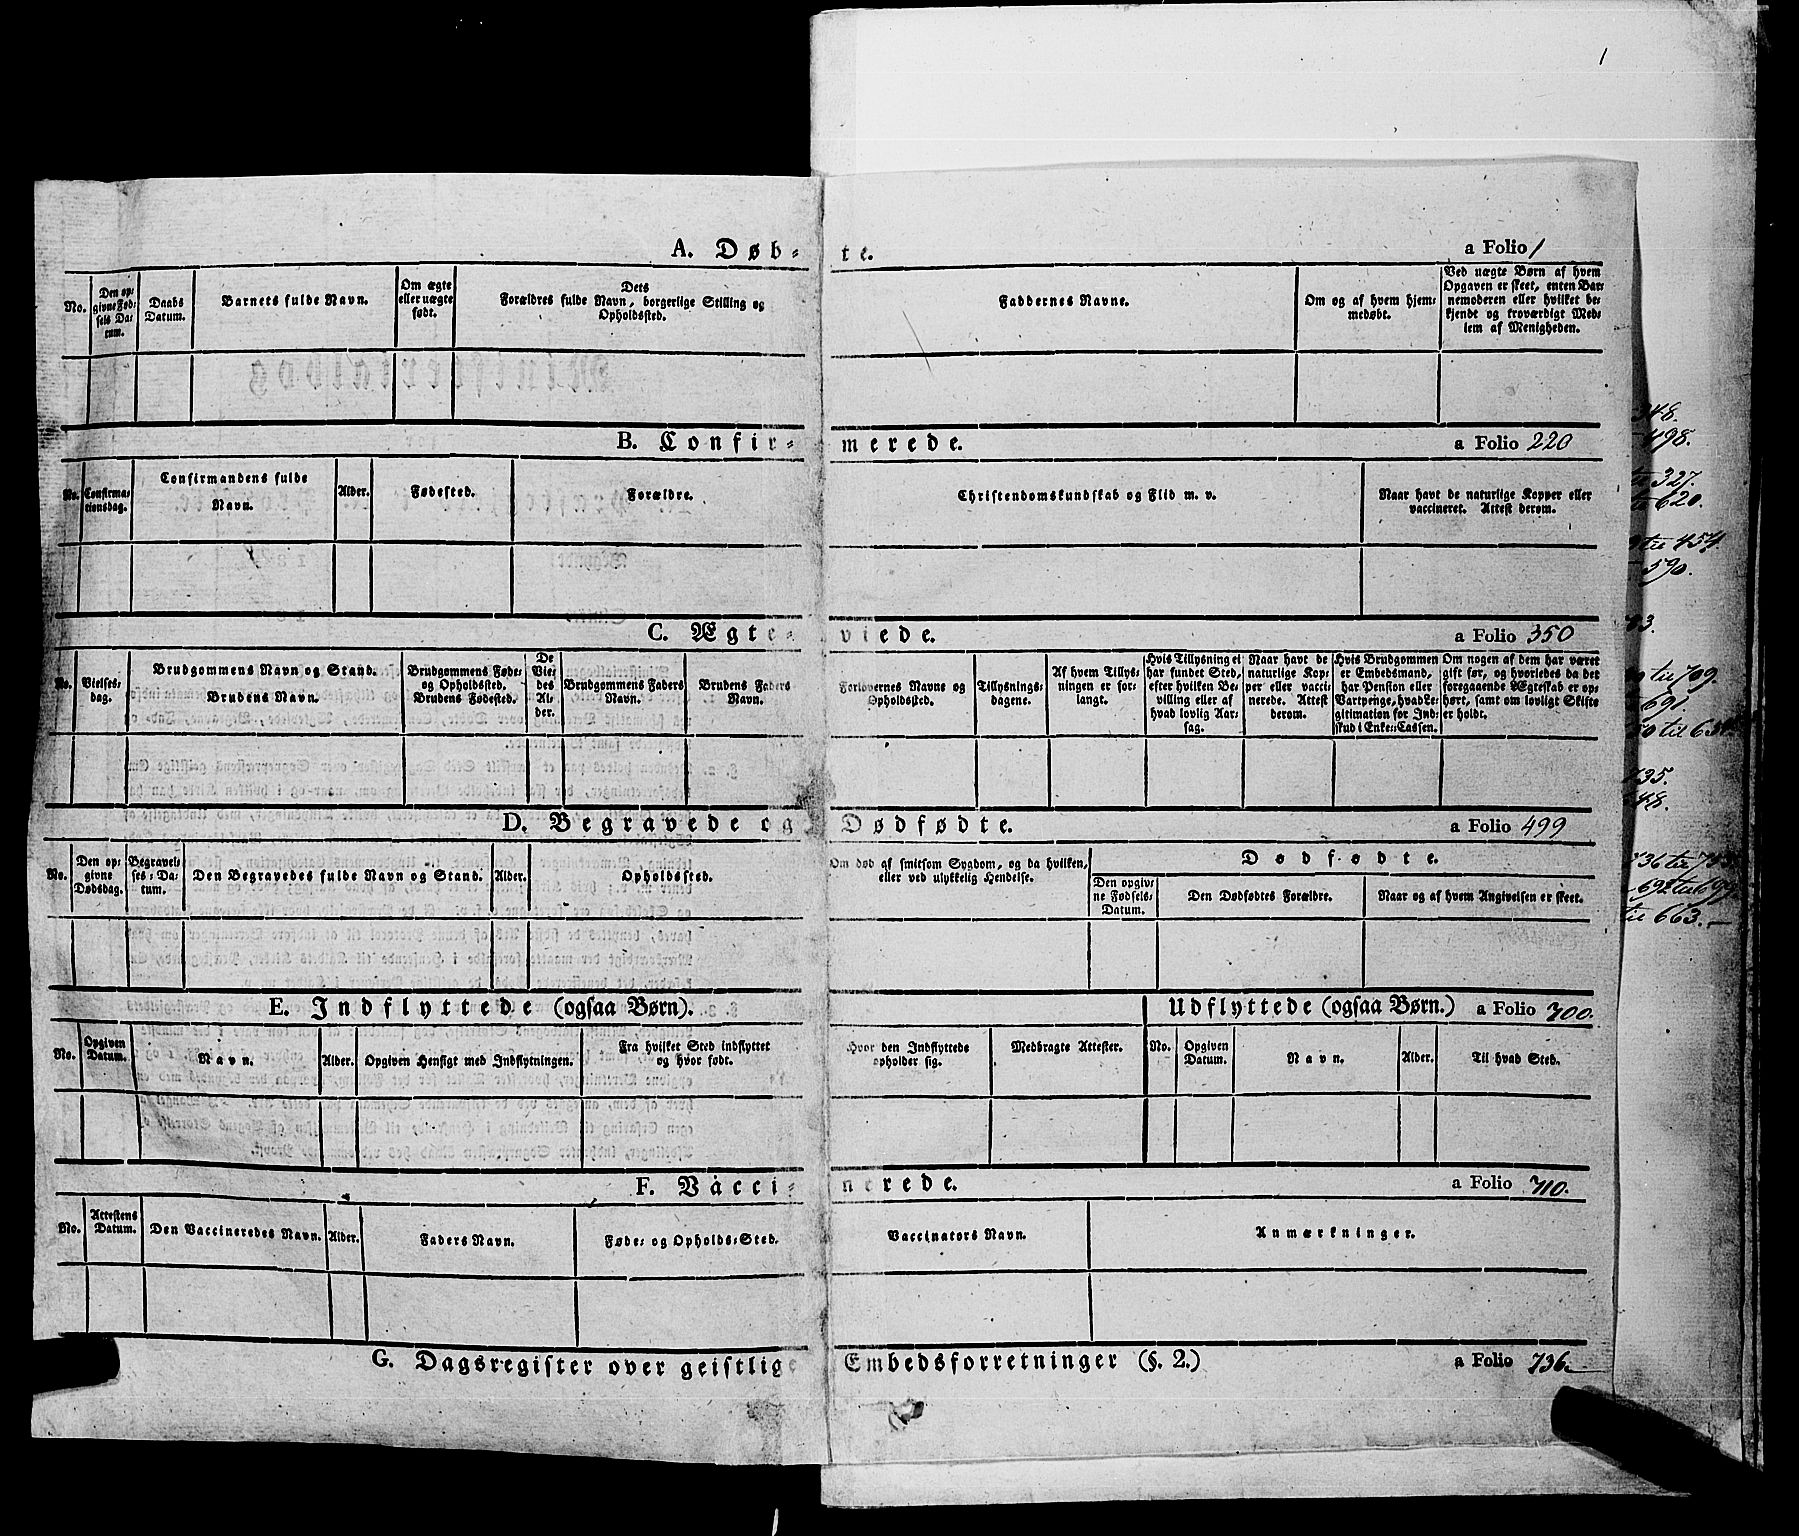 1
A. Døb- te. a Folio 1
No.
Den op-
givne Fød-
sels Da-
tum.
Daabs
Datum.
Barnets fulde Navn.
Om ægte
eller uægte
født.
Dets
Forældres fulde Navn, borgerlige Stilling og
Opholdssted.
Faddernes Navne.
Om og af hvem hjem-
medøbt.
Ved uægte Børn af hvem
Opgaven er skeet, enten Bar-
nemoderen eller hvilket be-
kjendt og troværdigt Med-
lem af Menigheden.
B. Confir- merede. a Folio 220
No.
Confirma-
tionsdag.
Confirmandens fulde
Navn.
Alder.
Fødested.
Forældre.
Christendomskundskab og Flid m. v.
Naar havt de naturlige Kopper eller
vaccineret. Attest derom.
C. Ægte- viede. a Folio 350
No.
Vielses-
dag.
Brudgommens Navn og Stand.
Brudens Navn.
Brudgommens Føde-
og Opholdssted.
Brudens Fødested.
De
Vie-
des
Al-
der.
Brudgommens Faders
Navn.
Brudens Faders
Navn.
Forlovernes Navne og
Opholdssted.
Tillysnings-
dagene.
Af hvem Tillys-
ningen er for-
langt.
Hvis Tillysning ei
har fundet Sted,
efter hvilken Be-
villing eller af
hvad lovlig Aar-
sag.
Naar havt de
naturlige Kop-
per eller vacci-
nerede. Attest
derom.
Hvis Brudgommen
er Embedsmand,
har Pension eller
Vartpenge, hvad Le-
gitimation for Ind-
skud i Enke-Cassen.
Om nogen af dem har været
gift før, og hvorledes da det
foregaaende Ægteskab er op-
hørt, samt om lovligt Skifte
er holdt.
D. Begravede og Dødfødte. a Folio 499
No.
Den op-
givne
Dødsdag.
Begravel-
ses-Da-
tum.
Den Begravedes fulde Navn og Stand.
Alder.
Opholdssted.
Om død af smitsom Sygdom, og da hvilken,
eller ved ulykkelig Hendelse.
Dødfødte.
Den opgiv-
ne Fødsels-
Datum.
Den Dødfødtes Forældre.
Naar og af hvem Angivelsen er skeet.
E. Indflyttede (ogsaa Børn). Udflyttede (ogsaa Børn.) a Folio 700.
No.
Opgiven
Datum.
Navn.
Alder.
Opgiven Hensigt med Indflytningen.
Fra hvilket Sted indflyttet
og hvor født.
Hvor den Indflyttede
opholder sig.
Medbragte Attester.
No.
Opgiven
Datum.
Navn.
Alder.
Til hvad Sted.
F. Vacci- nerede. a Folio 710.
No.
Attestens
Datum.
Den Vaccineredes Navn.
Alder.
Faders Navn.
Føde- og Opholds-Sted.
Vaccinators Navn.
Anmærkninger.
G. Dagsregister over geistlige Embedsforretninger (§. 2.) a Folio 736.
348.
498.
327.
620.
til 454.
590.
til 709.
691.
735.
til 663.